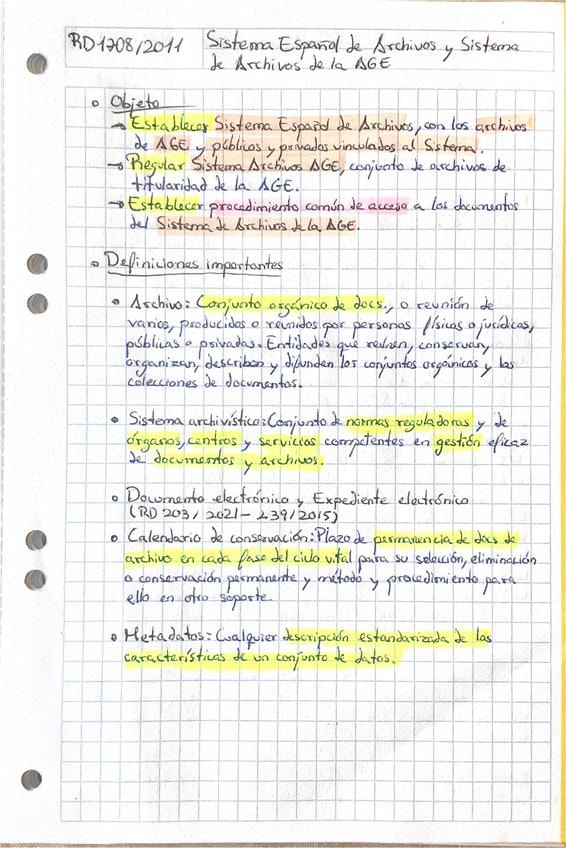 RD1708/2011 Sistema Español de Archivos y Sistema
de Archivos de la AGE
• Objeto
→ Establecer Sistema Español de Archivos, con los archivos
de AGE y públicos y privados vinculados al Sistema.
→ Regular Sistema Archivos AGE, conjunto de archivos de
titularidad de la AGE.
→ Establecer procedimiento común de acceso a los documentos
del Sistema de Archivos de la AGE.
• Definiciones importantes
• Archivo: Conjunto orgánico de docs., o reunión de
varios, producidos o reunidos por personas físicas o jurídicas,
públicas o privadas. Entidades que reúnen, conservan,
organizan, describen y difunden los conjuntos orgánicos y las
colecciones de documentos.
• Sistema archivístico: Conjunto de normas reguladoras y de
órganos, centros y servicios competentes en gestión eficaz
de documentos y archivos.
• Documento electrónico y Expediente electrónico
(RD 203/2021 - L39/2015)
• Calendario de conservación: Plazo de permanencia de docs de
archivo en cada fase del ciclo vital para su selección, eliminación
o conservación permanente y método y procedimiento para
ello en otro soporte.
• Metadatos: Cualquier descripción estandarizada de las
características de un conjunto de datos.